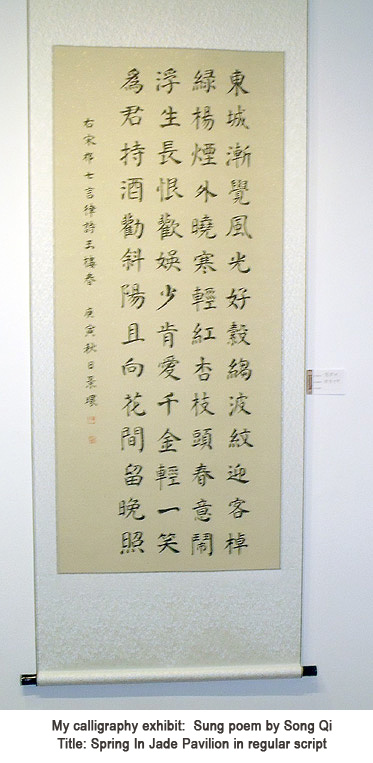 東城漸覺風光好縠縐波紋迎客棹
綠楊煙外曉寒輕紅杏枝頭春意鬧
浮生長恨歡娛少肯愛千金輕一笑
為君持酒勸斜陽且向花間留晚照
右宋祁七言律詩玉樓春 庚寅秋日
My calligraphy exhibit:  Sung poem by Song Qi
Title: Spring In Jade Pavilion in regular script